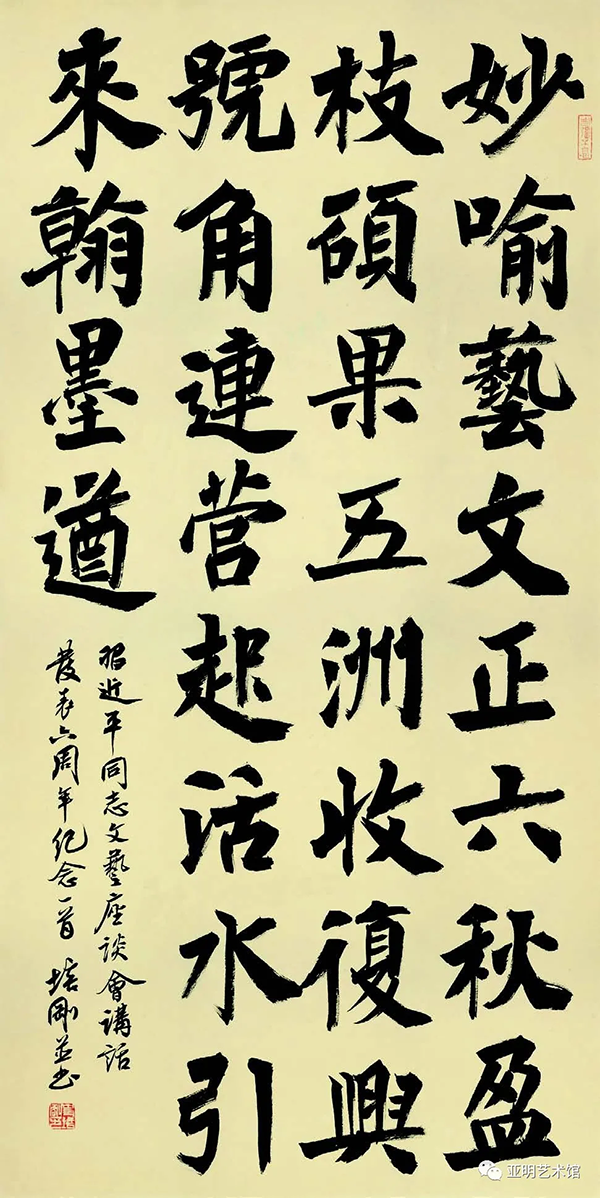 妙喻藝文正六秋盈
枝碩果五洲收復興
號角連營起活水引
來翰墨遒
習近平同志文藝座談會講話
發表六周年紀念一首 培剛並书
亚明艺术馆